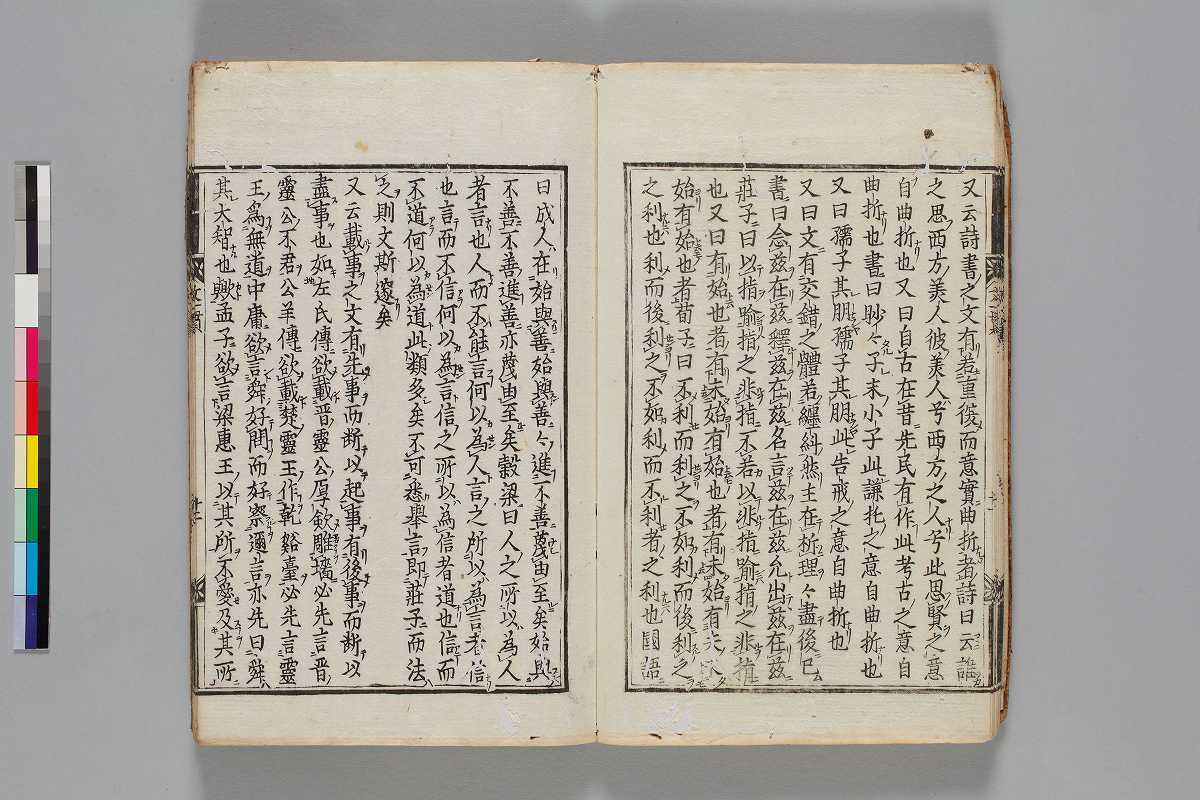 又云詩書之文有若重復而意實曲折者詩曰云誰
之思西方美人彼美人兮西方之人兮此思賢之意
自曲折也又曰自古在昔先民有作此考古之意自
曲折也書曰眇々予末小子此謙托之意自曲折也
又曰孺子其朋孺子其朋此告戒之意自曲折也
又曰文有交錯之體若纏糾然主在析理々盡後已
書曰念茲在茲釋茲在茲名言茲在茲允出茲在茲
莊子曰以指喻指之非指不若以非指喻指之非指
也又曰有始也者有未始有始也者有未始有夫未
始有始也者荀子曰不利而利之不如利而後利之
之利也利而後利之不如利而不利者之利也國語
曰成人在始與善始與善々進不善蔑由至矣始與
不善不善進善亦蔑由至矣穀梁曰人之所以為人
者言也人而不能言何以為人言之所以為言者信
也言而不信何以為言信之所以為信者道也信而
不道何以為道此類多矣不可悉舉言即莊子而法
之則文斯邃矣
又云載事之文有先事而斷以起事有後事而斷以
盡事也如左氏傳欲載晉靈公厚斂雕墻必先言晉
靈公不君公羊傳欲載楚靈王作乾谿臺必先言靈
王為無道中庸欲言舜好問而好察邇言亦先曰舜
其大智也歟孟子欲言梁惠王以其所不愛及其所